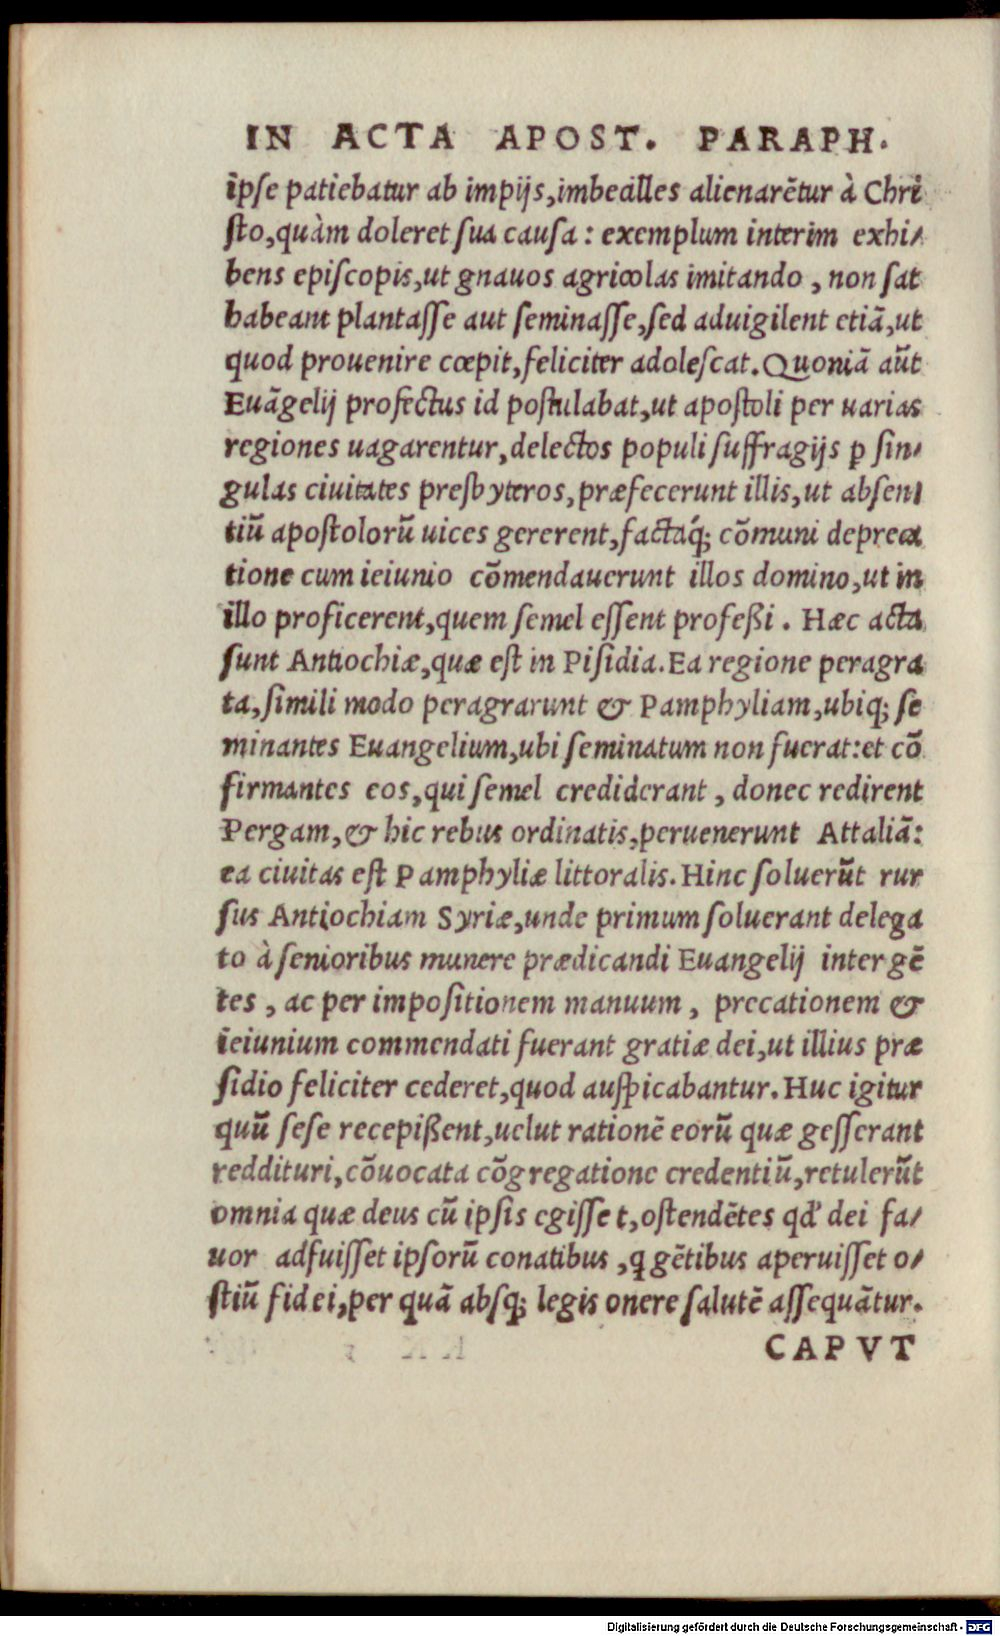 IN ACTA APOST. PARAPH.
ipſe patiebatur ab impijs,imbecilles alienarētur à Chri
ſto,quàm doleret ſua cauſa : exemplum interim exhi⸗
bens epiſcopis,ut gnauos agricolas imitando , non ſat
habeant plantaſſe aut ſeminaſſe,ſed aduigilent etiā,ut
quod prouenire cœpit,feliciter adoleſcat. Quoniā aūt
Euāgelij profectus id poſtulabat,ut apoſtoli per uarias
regiones uagarentur,delectos populi ſuffragijs ꝑ ſin⸗
gulas ciuitates presbyteros,præfecerunt illis,ut abſen⸗
tiū apoſtolorū uices gererent,factáq́; cōmuni depreca
tione cum ieiunio cōmendauerunt illos domino,ut in
illo proficerent,quem ſemel eſſent profeßi . Hæc acta
ſunt Antiochiæ,quæ eſt in Piſidia. Ea regione peragra
ta,ſimili modo peragrarunt & Pamphyliam,ubiq; ſe
minantes Euangelium,ubi ſeminatum non fuerat:et cō
firmantes eos,qui ſemel crediderant , donec redirent
Pergam,& hic rebus ordinatis,peruenerunt Attaliā:
ea ciuitas eſt Pamphyliæ littoralis. Hinc ſoluerūt rur
ſus Antiochiam Syriæ,unde primum ſoluerant delega
to à ſenioribus munere prædicandi Euangelij inter gē
tes , ac per impoſitionem manuum , precationem &
ieiunium commendati fuerant gratiæ dei,ut illius præ
ſidio feliciter cederet,quod auſpicabantur. Huc igitur
quū ſeſe recepißent,uelut rationē eorū quæ geſſerant
reddituri,cōuocata cōgregatione credentiū,retulerūt
omnia quæ deus cū ipſis egiſſet,oſtendētes qd' dei fa⸗
uor adfuiſſet ipſorū conatibus ,q gētibus aperuiſſet o⸗
ſtiū fidei,per quā abſq; legis onere ſalutē aſſequātur.
CAPVT
Digitalisierung gefördert durch die Deutsche Forschungsgemeinschaft - DFG